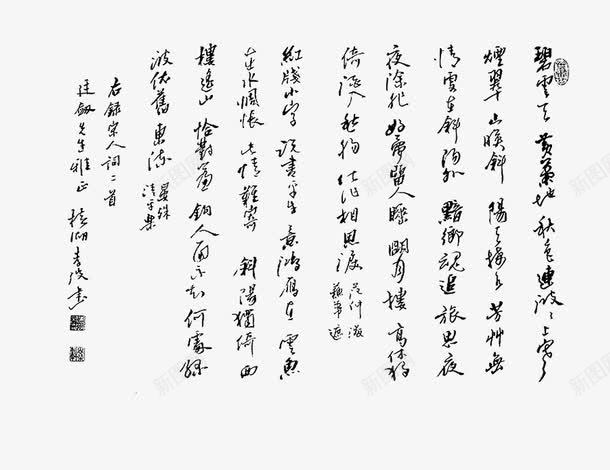 碧雲天黄葉地秋色連波〻上寒
煙翠山暎斜陽天接水芳艸無
情更在斜陽外黯鄉魂追旅思夜
夜除非好夢留人睡明月樓高休獨
倚酒入愁腸化作相思淚范仲淹
蘇幕遮
紅牋小字說盡平生意鴻雁在雲魚
在水惆悵此情難寄斜陽獨倚西
樓遙山恰對簾鉤人面不知何處綠
波依舊東流晏殊
清平樂
右錄宋人詞二首
先生雅正桂湖書